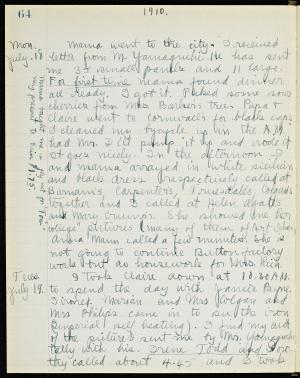 64
1910.
Mon. Mama went to the city. I received
July 18 letter from M. Yamaguchi. He has sent
me 35 small and 11 large.
For first time mama found dinner
all ready. I got it. Picked some sour
cherries from Mrs. Barber's tree. Papa &
Claire went to Cornwall's for black caps
I cleaned my bycycle up in the A.M.
had Mr. pump it up and rode it
It goes nicely. In the afternoon I
and mama arrayed in white
and black dress respectively called at
Barnam's, Carpenter's, Truesdale's,
together and I called at Helen
and Mary Crump's. She showed me her
college pictures (many of them of art
Anna Mann called a few minutes. She is
not going to continue Button factory
work but as housework for
Tues. I took Claire down at 10.30 A.M.
July 19. to spend the day with Janice Payne.
I ironed. Marian and Mrs. Colgan and
Mrs. Philips came in to see the iron
(Imperial self heating). I find my
of the pictures sent me by Mr. Yamaguchi
tally with his. Irene Todd and
they called about 4.45 and I took